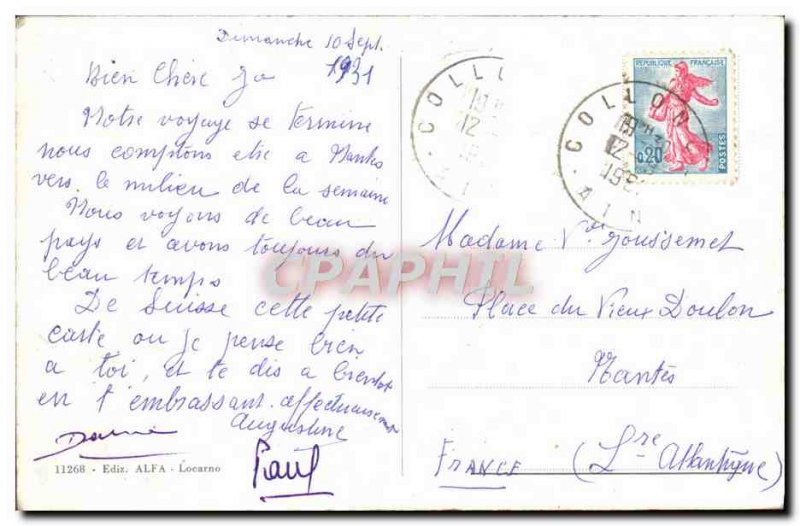 Dimanche 10 Sept.
1931
Bien Chère Jo
Notre voyage se termine
nous comptons etre a Nantes
vers le milieu de la semaine
Nous voyons de beau
pays et avons toujours du
beau temps
De Suisse cette petite
carte ou je pense bien
a toi, et te dis a bientot
en t'embrassant affectueusement
Augustine
Paul
11268 - Ediz. ALFA - Locarno
COLLO
12
COLLON
12
AIN
REPUBLIQUE FRANÇAISE
0,20
POSTES
Madame Ve Joussemet
Place du Vieux Doulon
Nantes
FRANCE (Lre Atlantique)
CPAPHIL